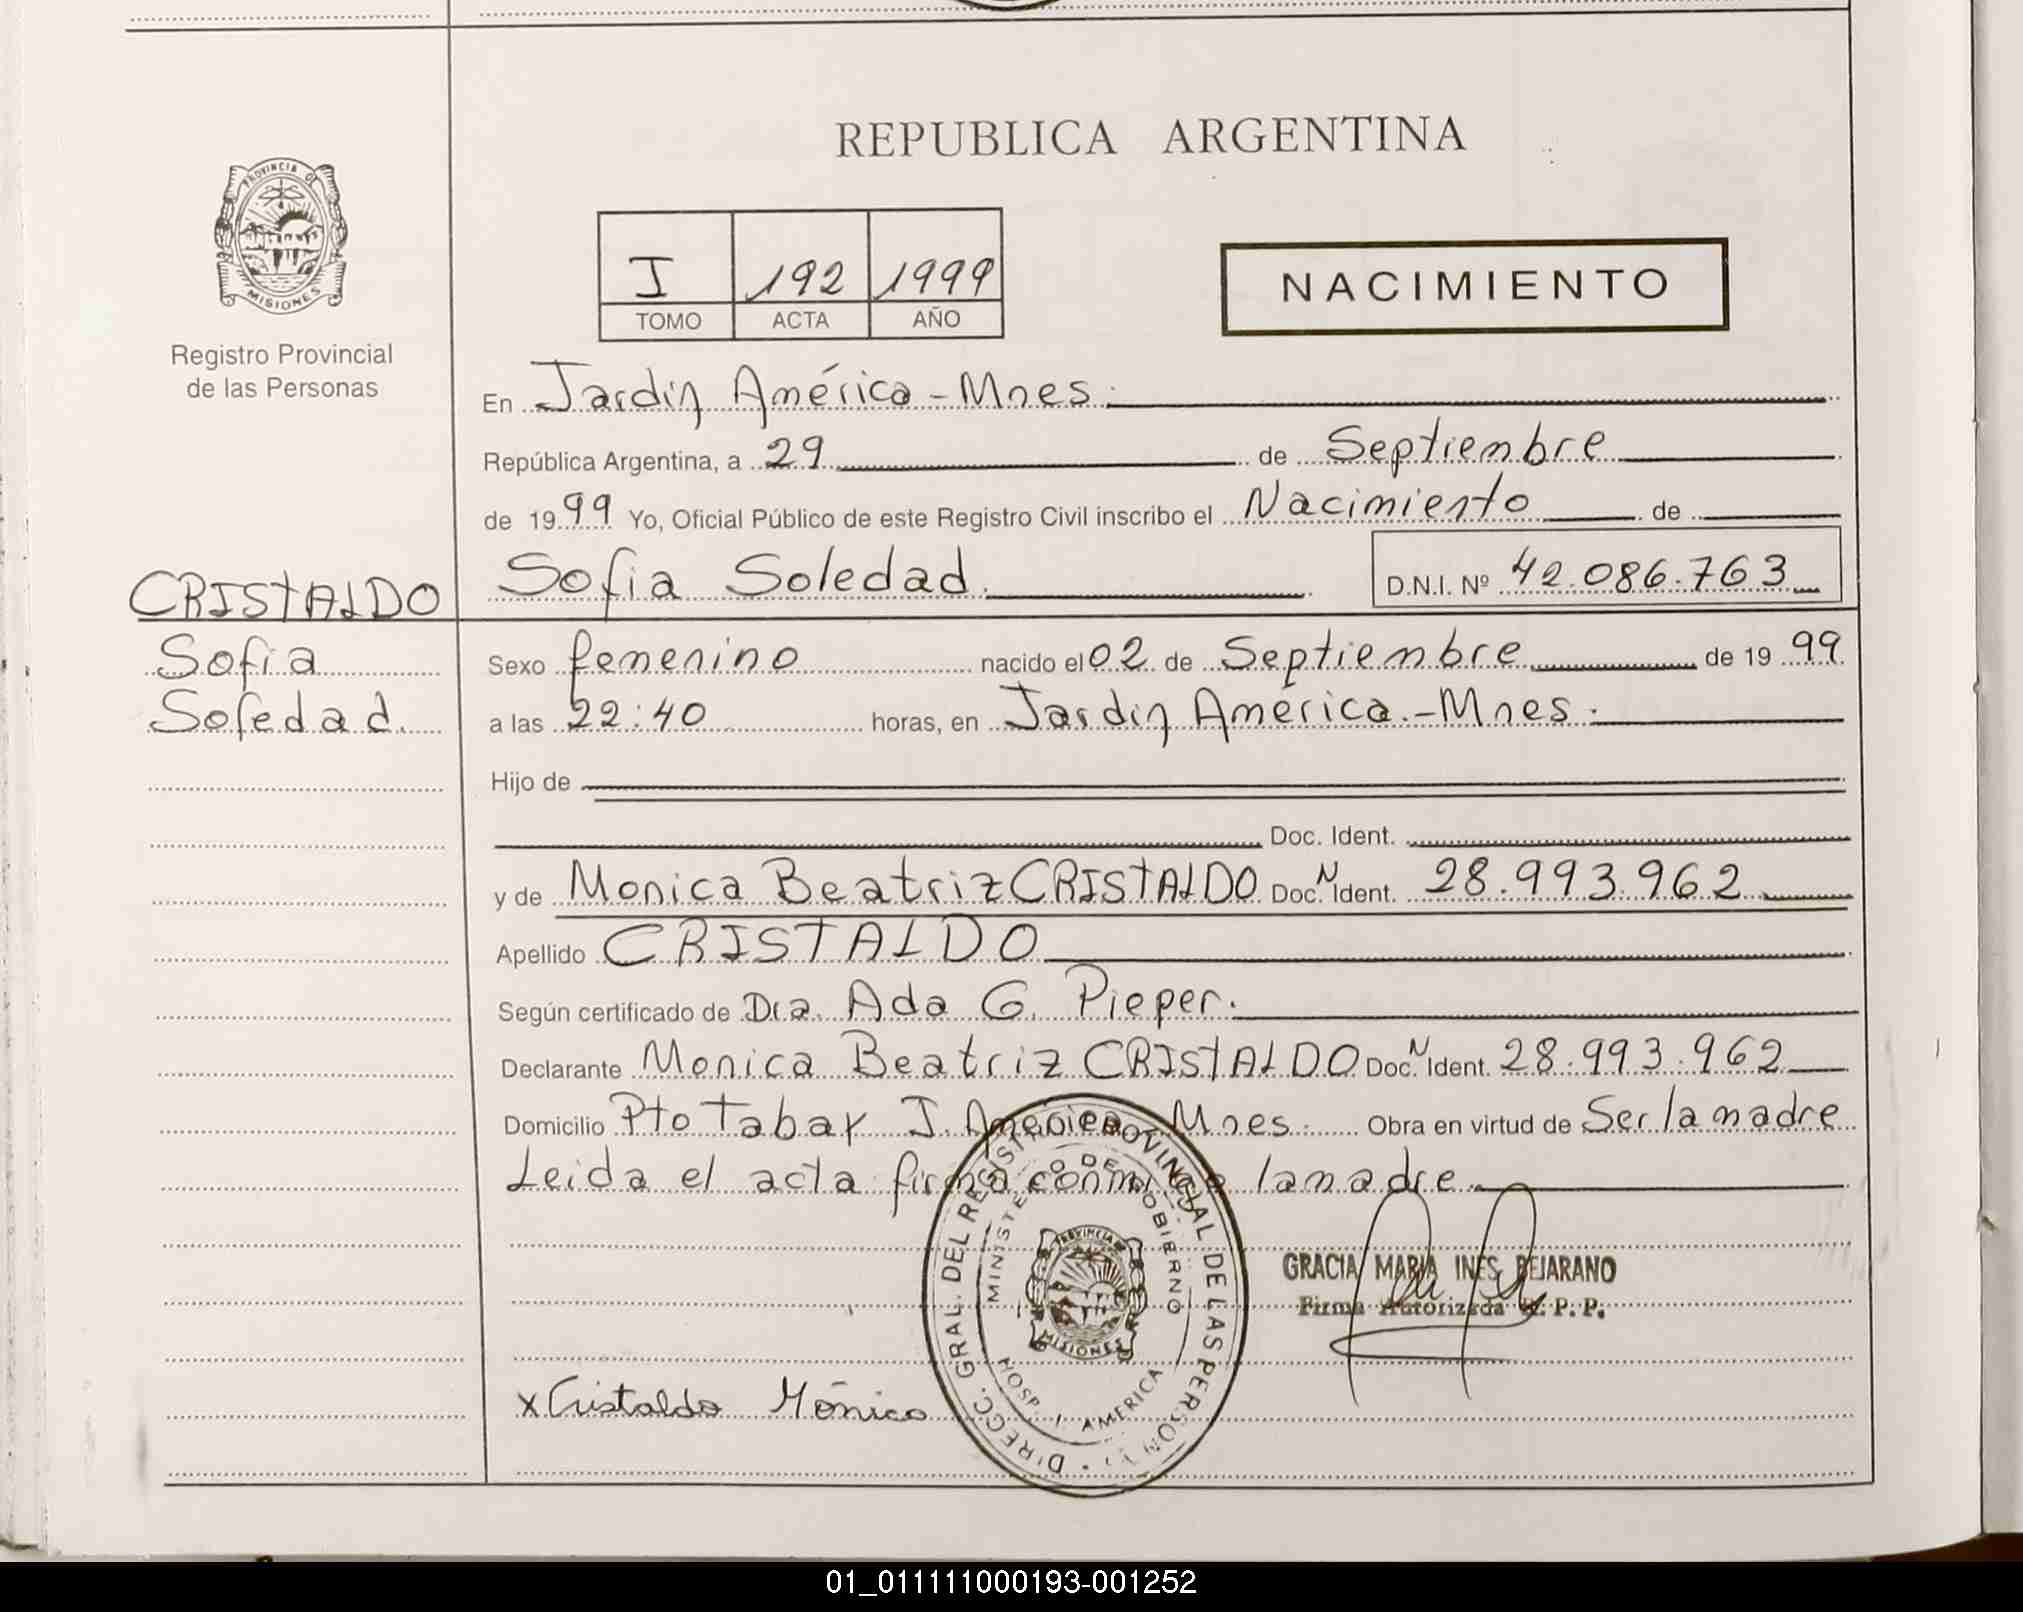 REPUBLICA ARGENTINA
PROVINCIA D
MISIONES
Registro Provincial
de las Personas
I 192 1999
TOMO ACTA AÑO
NACIMIENTO
En Jardin América - Mnes.
República Argentina, a 29 de Septiembre
de 1999 Yo, Oficial Público de este Registro Civil inscribo el Nacimiento de
CRISTALDO Sofia Soledad. D.N.I. Nº 42.086.763
Sofia Sexo femenino nacido el 02 de Septiembre de 1999
Soledad. a las 22:40 horas, en Jardin América.-Mnes.
Hijo de
Doc. Ident.
y de Monica Beatriz CRISTALDO Doc. N Ident. 28.993.962
Apellido CRISTALDO
Según certificado de Dra. Ada G. Pieper.
Declarante Monica Beatriz CRISTALDO Doc. N Ident. 28.993.962
Domicilio Pto Tabay J. América - Mnes. Obra en virtud de Ser la madre
Leida el acta firma conmigo la madre
DIRECC. GRAL. DEL REGISTRO PROVINCIAL DE LAS PERSONAS
MINISTERIO DE GOBIERNO
HOSP. J. AMERICA
PROVINCIA
MISIONES
GRACIA MARIA INES BEJARANO
Firma Autorizada R. P. P.
x Cristaldo Mónica
01_011111000193-001252